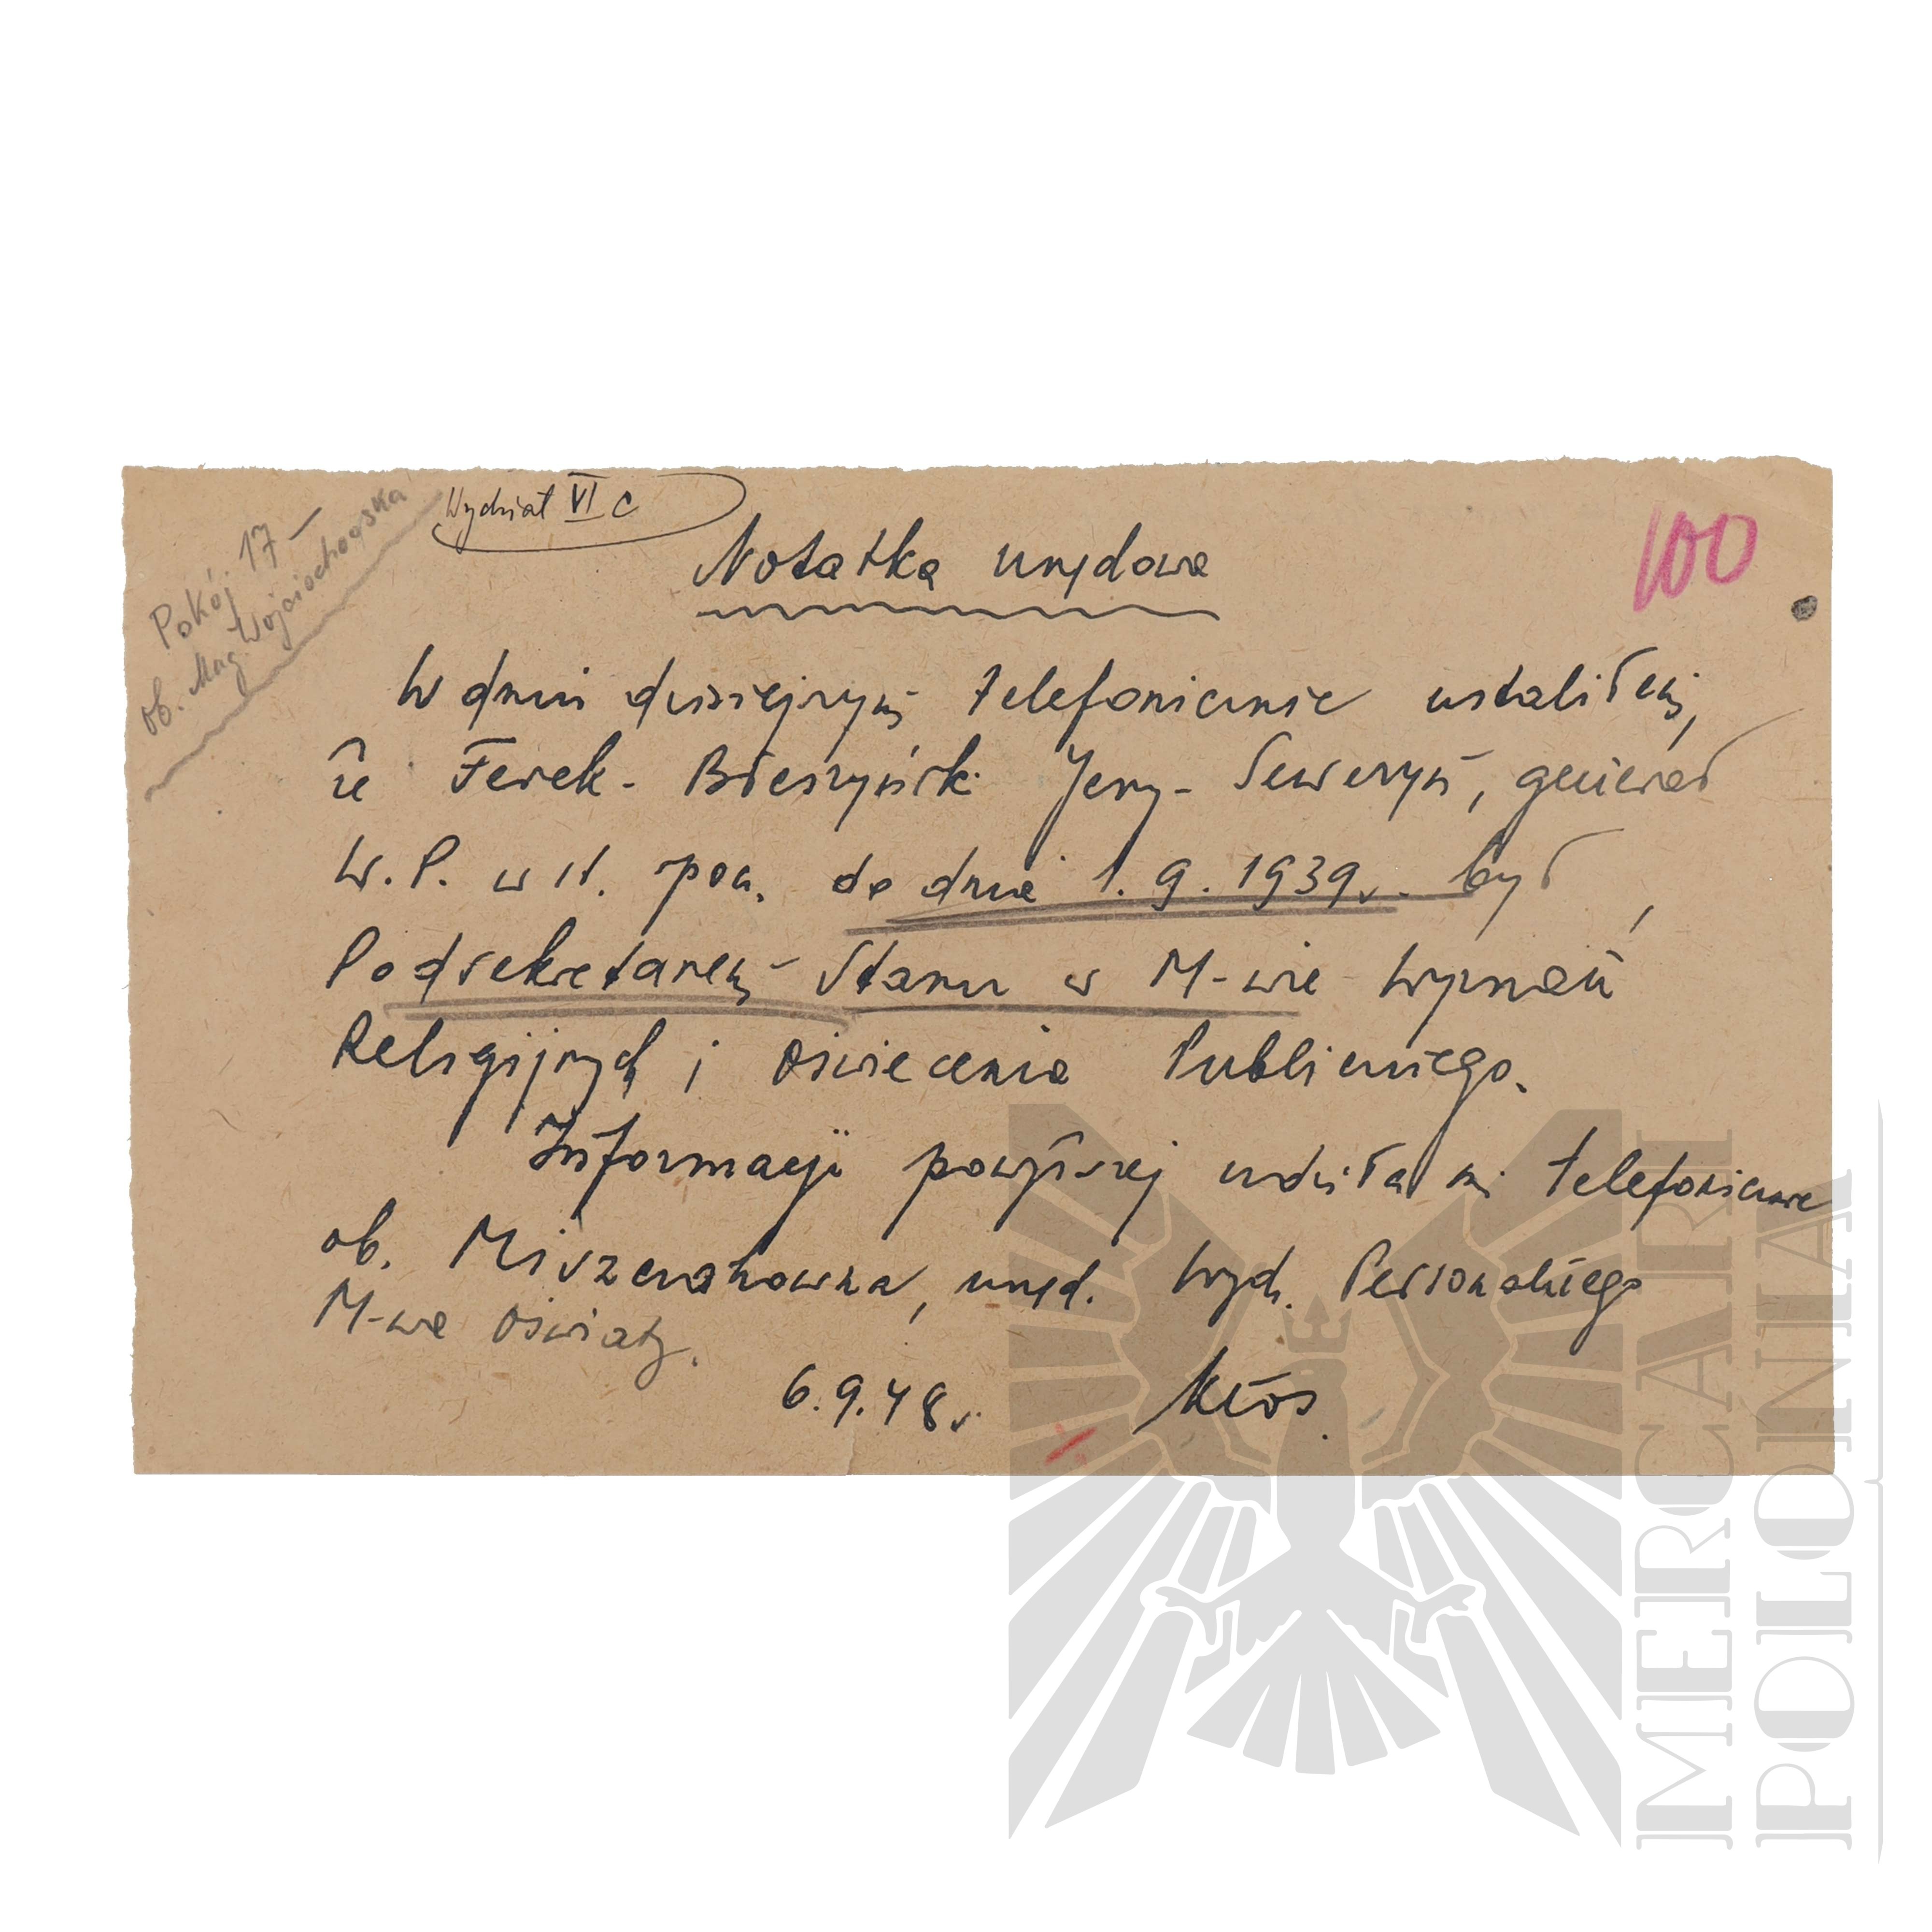 Pokój 17 –
ob. Mag. Wojciechowska
Wydział VI C
100
Notatka urzędowa
W dniu dzisiejszym telefonicznie ustaliłem,
że Ferek-Błeszyński Jerzy-Seweryn, generał
W.P. w st. spocz. do dnia 1.9.1939r. był
Podsekretarzem Stanu w M-wie Wyznań
Religijnych i Oświecenia Publicznego.
Informacji powyższej udzieliła mi telefonicznie
ob. , urzęd. Wydz. Personalnego
M-wa Oświaty.
6.9.48r. Kłos.
IMERCARI
POLONIA